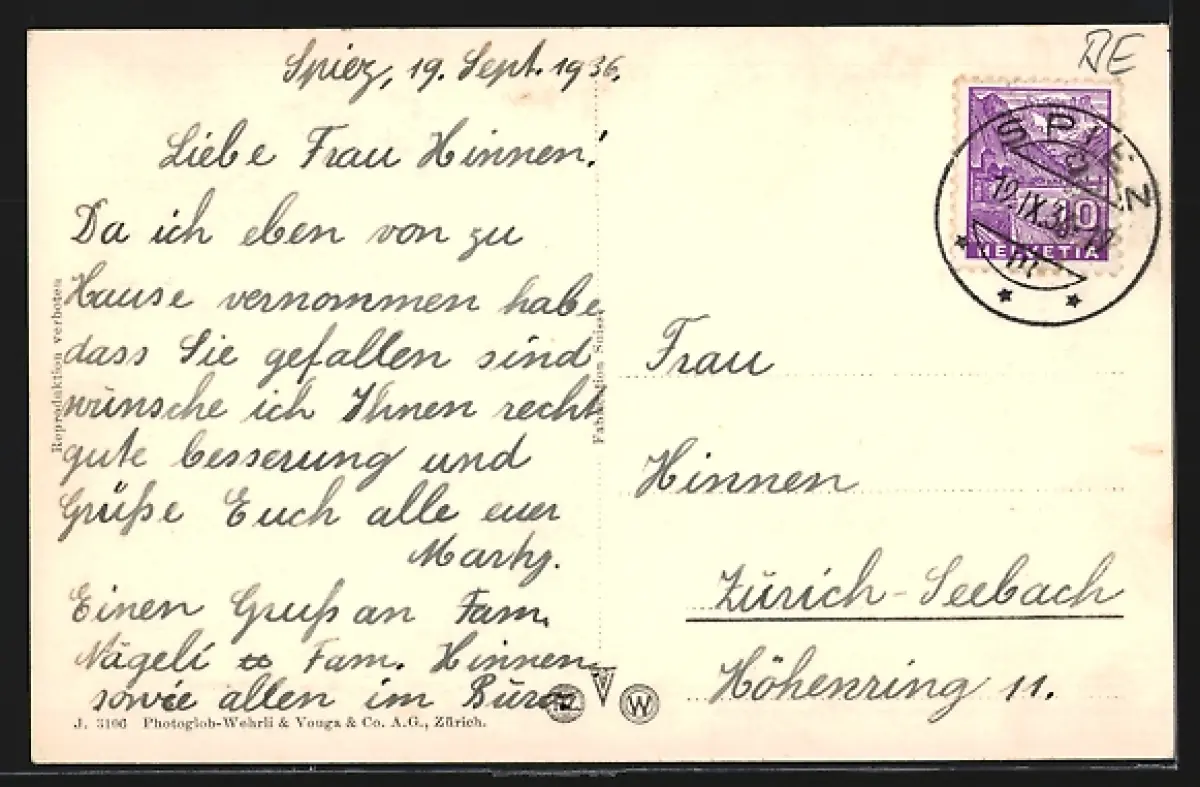 Spiez, 19. Sept. 1936.
Liebe Frau Hinnen!
Da ich eben von zu
Hause vernommen habe
dass Sie gefallen sind
wünsche ich Ihnen recht
gute besserung und
Grüße Euch alle euer
Einen Gruß an Fam.
Nägeli & Fam. Hinnen
sowie allen im Büro
J. 3106 Photoglob-Wehrli & Vouga & Co. A.G., Zürich.
Reproduktion verboten
Fabrication Suisse
W
RE
SPIEZ
19.IX.36
HELVETIA
10
Frau
Hinnen
Zürich-Seebach
Höhenring 11.